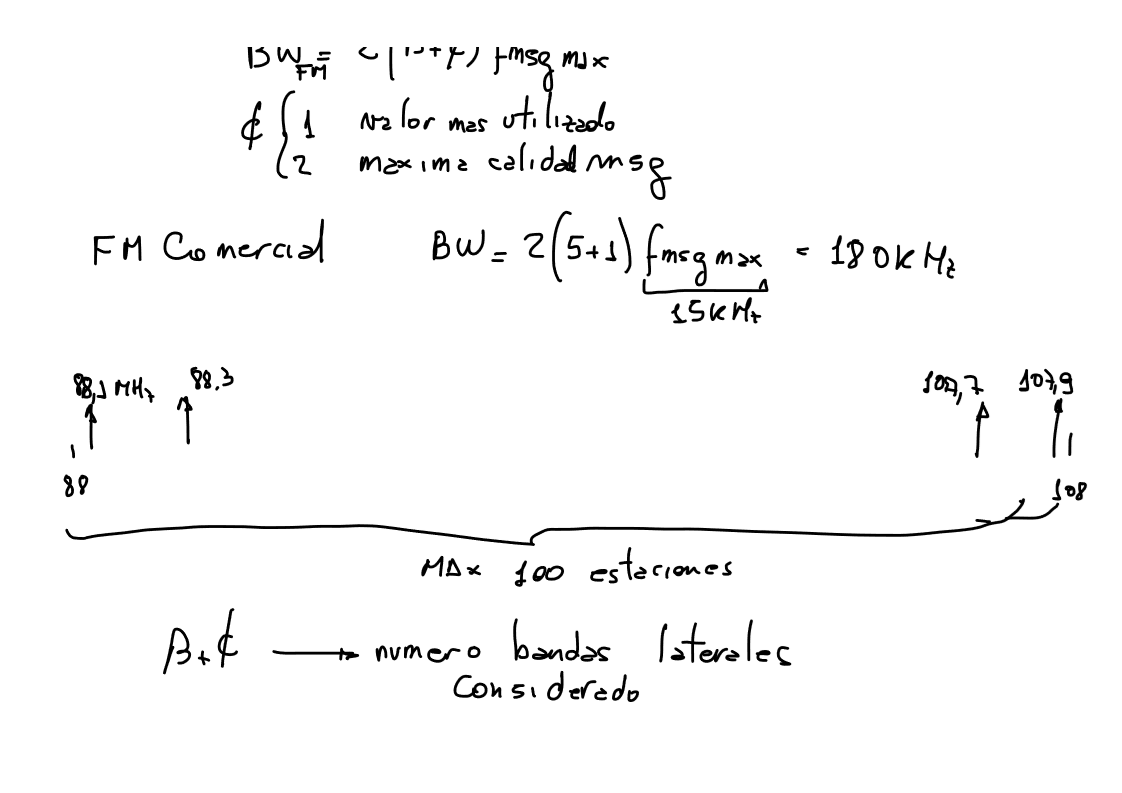 BW FM = 2(β+¢) fmsg max
¢ { 1 valor mas utilizado
2 maxima calidad msg
FM Comercial BW = 2(5+1) fmsg max = 180KHz
15KHz
88,1 MHz 88.3 107,7 107,9
88 108
MAx 100 estaciones
β+¢ → numero bandas laterales
Considerado